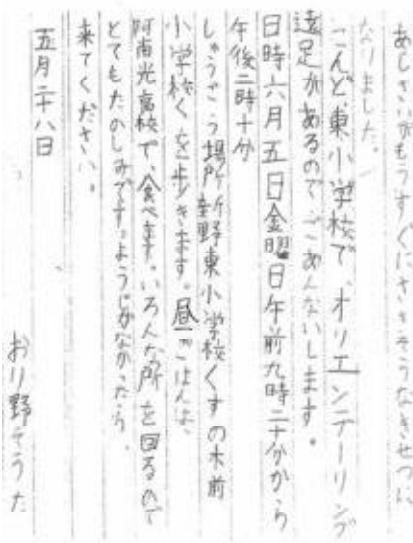 あじさいがもうすぐにさきそうなきせつに
なりました。
こんど東小学校で、オリエンテーリング
遠足があるのでごあんないします。
日時六月五日金曜日午前九時二十分から
午後二時十分
しゅうごう場所 野東小学校くすの木前
小学校くを歩きます。昼ごはんは、
阿南光高校で、食べます。いろんな所を回るので
とてもたのしみです。ようじがなかったら、
来てください。
五月二十八日
おり野そうた